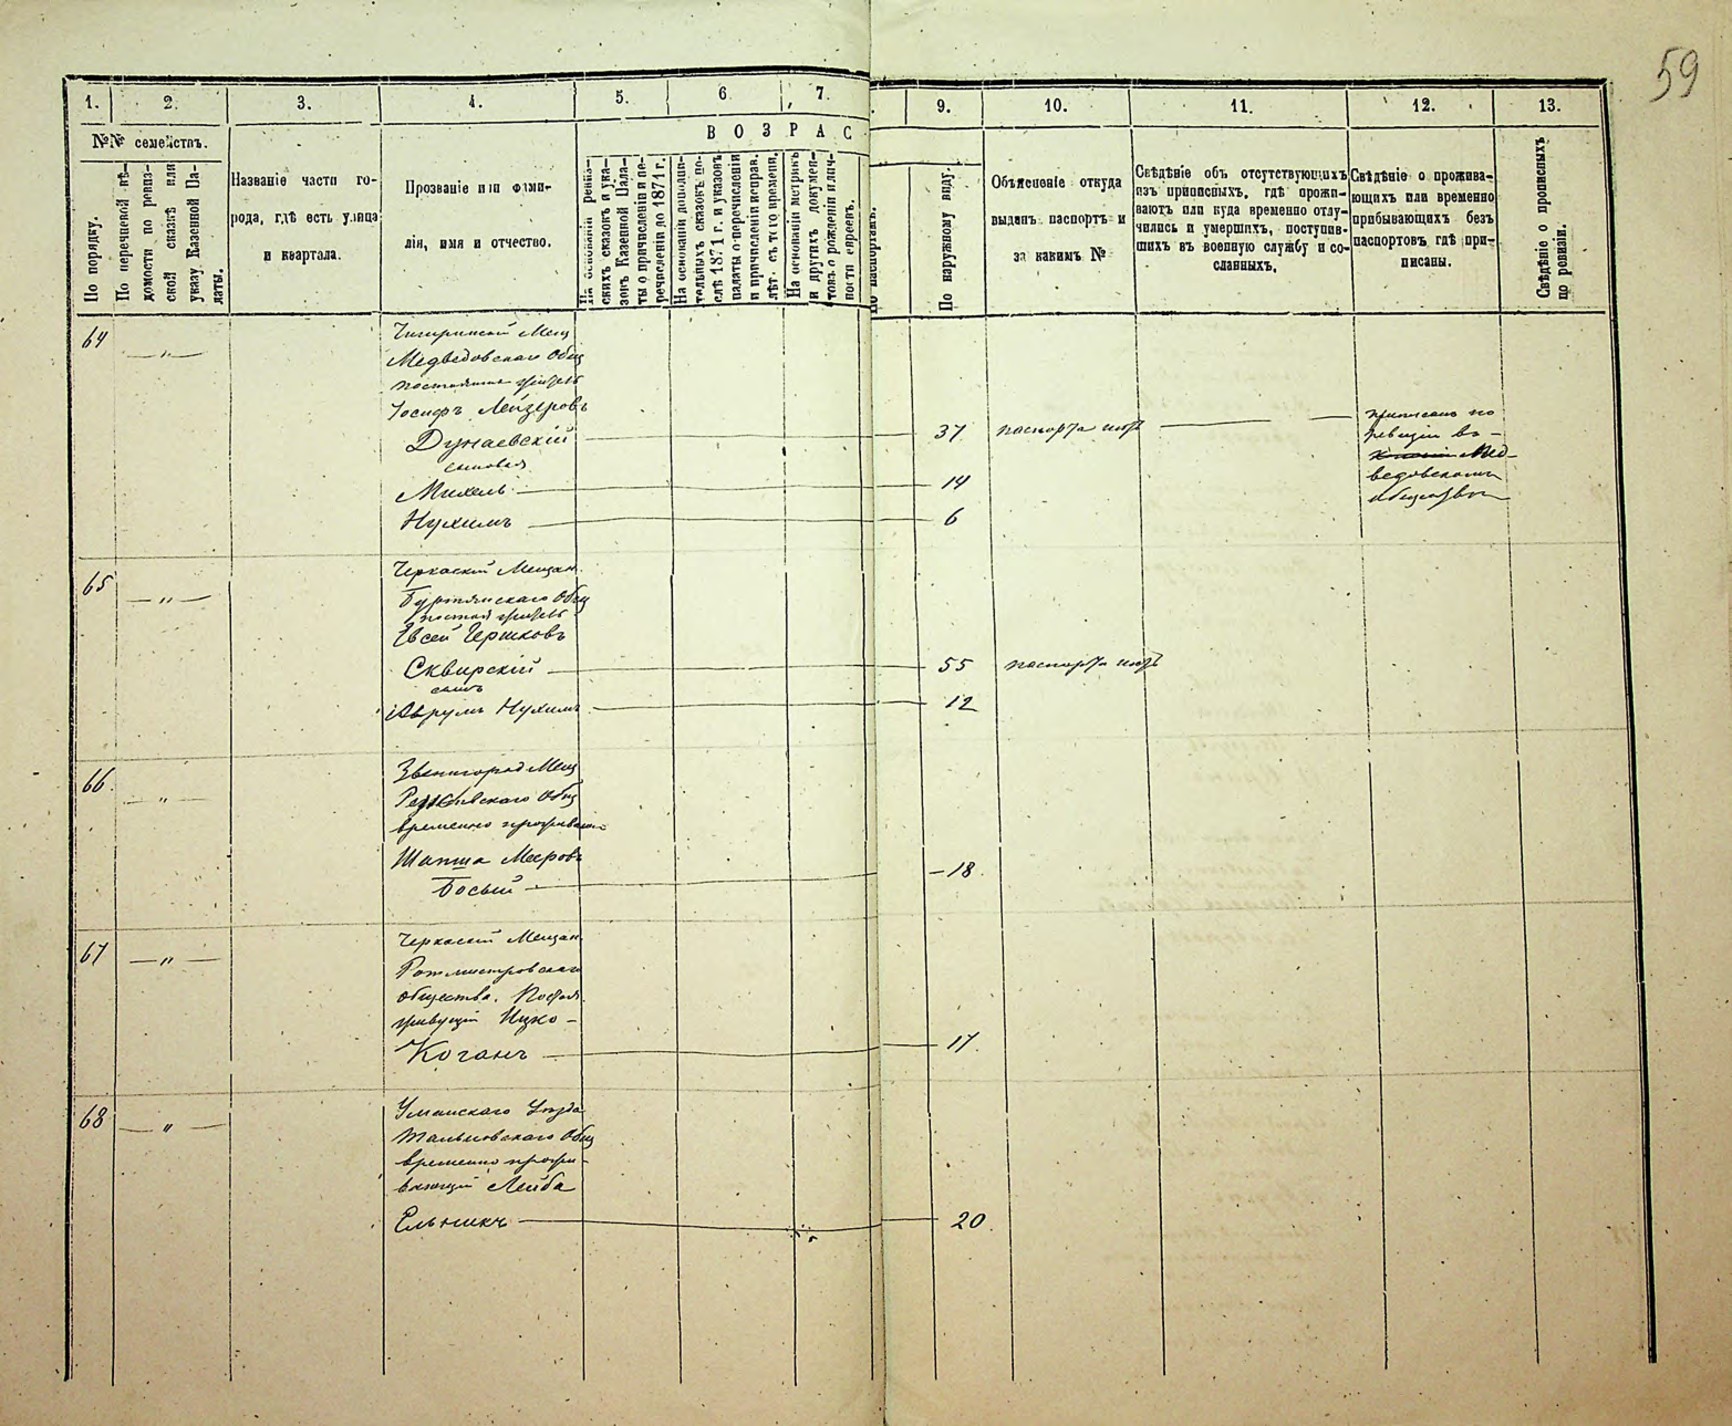 59
1. 2. 3. 4. 5. 6. 7. 9. 10. 11. 12. 13.
№№ семействъ.
По порядку.
По перечневой вѣ-
домости по ревиз-
ской сказкѣ или
указу Казенной Па-
латы.
Названіе части го-
рода, гдѣ есть улица
и квартала.
Прозваніе или фами-
лія, имя и отчество.
ВОЗРАС
На основаніи ревиз-
скихъ сказокъ и ука-
зовъ Казенной Пала-
ты о причисленіи и пе-
речисленіи до 1871 г.
На основаніи дополни-
тельныхъ сказокъ по-
слѣ 1871 г. и указовъ
палаты о перечисленіи
и причисленіи исправ.
лѣт. съ того времени.
На основаніи метрикъ
и другихъ докумен-
товъ о рожденіи и лич-
ности евреевъ.
По паспортамъ.
По наружному виду.
Объясненіе откуда
выданъ паспортъ и
за какимъ №
Свѣдѣніе объ отсутствующихъ
изъ приписныхъ, гдѣ прожи-
ваютъ или куда временно отлу-
чились и умершихъ, поступив-
шихъ въ военную службу и со-
сланныхъ.
Свѣдѣніе о прожива-
ющихъ или временно
прибывающихъ безъ
паспортовъ гдѣ при-
писаны.
Свѣдѣніе о прописныхъ
по ревизіи.
64 — " —
Чигиринскій Мещ
Медведовскаго Общ
Іосифъ Лейзеровъ
Дунаевскій 37 паспорта нѣтъ
приписанъ по
ревизіи въ
Мед-
ведовскомъ
обществѣ
сыновья
Михель 14
Нухимъ 6
65 — " —
Черкаскій Мещан.
Буртянскаго Общ
Евсей Гершковъ
Сквирскій 55 паспорта нѣтъ
сынъ
Аврумъ Нухимъ 12
66. — " —
Звенигород Мещ
Общ
временно прожива
Шапша Меровъ
Босый 18.
67 — " —
Черкаскій Мещан.
Ротмистровскаго
общества. Постоя.
живущій Ицко -
Коганъ 17.
68 — " —
Уманскаго Уѣзда
Тальновскаго Общ
временно прожи-
вающій Лейба
Ельникъ 20.